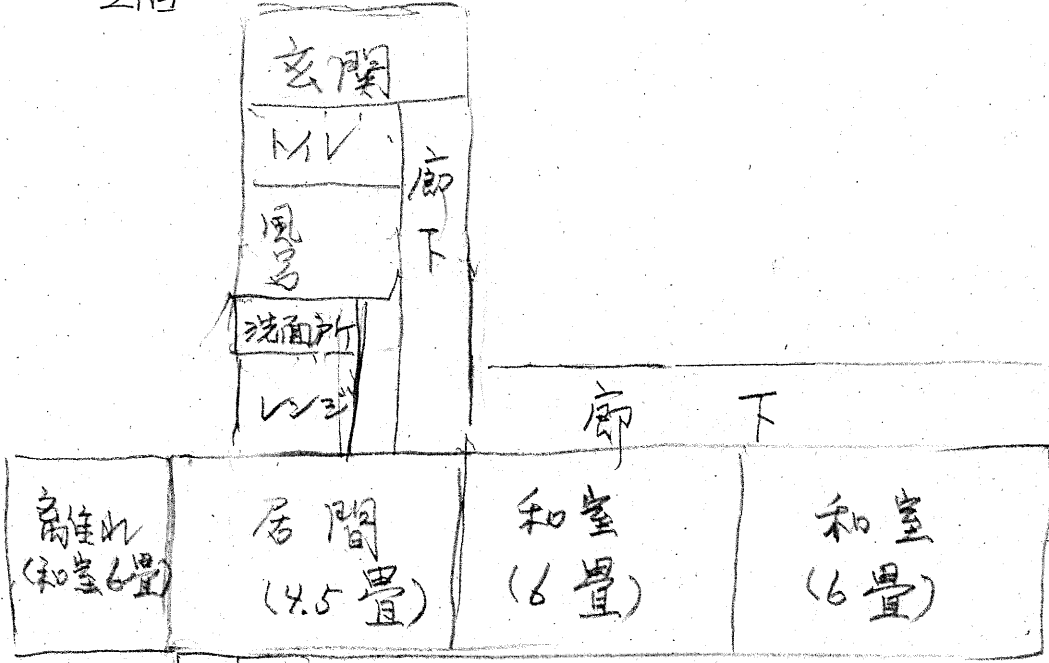 玄関
トイレ
廊下
風呂
洗面所
レンジ
廊下
離れ
(和室6畳)
居間
(4.5畳)
和室
(6畳)
和室
(6畳)